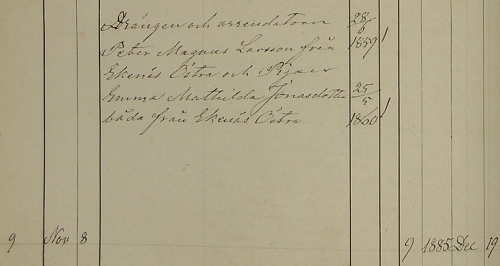 Drängen och arrendatorn 28/8
Peter Magnus Larsson från 1859 1
Ekenäs Östra och Pigan
Emma Mathilda Jonasdotter 25/5
båda från Ekenäs Östra 1860 1
9 Nov 8 9 1885 Dec 19